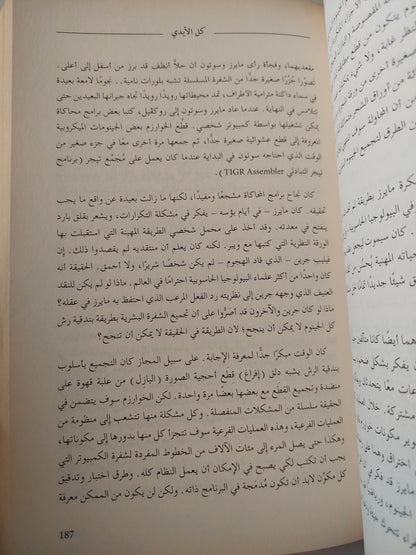 كل الأيدي
مقعديهما، وفجأة رأى مايرز وسوتون أن حلاًّ أنظف قد برز من أسفل إلى أعلى.
تصوَّرا جُزُرًا صغيرة جدًّا من الشفرة المسلسلة تشبه بلورات نامية.. نجومًا لامعة بعيدة في
سماء داكنة مترامية الأطراف، تمد محيطاتها رويدًا رويدًا تجاه جيرانها البعيدين حتى
تتلامس في النهاية. عندما عاد مايرز وسوتون إلى روكفيل، كتبا بعض برامج محاكاة
يمكن تشغيلها بواسطة كمبيوتر شخصي. قطع الخوارزم بعض الجينومات الميكروبية
المعروفة إلى قطع عشوائية صغيرة جدًّا، ثم جمعها مرة أخرى معًا في جزء صغير من
الوقت الذي احتاجه سوتون في البداية عندما كان يعمل على مُجَمِّع تيجر (برنامج
تيجر التبادلي TIGR Assembler).
كان نجاح برامج المحاكاة مشجعًا ومفيدًا، لكنها ما زالت بعيدة عن واقع ما يجب
تحقيقه. كان مايرز – في أيام بؤسه – يفكر في مشكلة التكرارات، ويشعر بقلق بارد
يتفتح في معدته. وقد اعتمد على محمل شخصي الطريقة المهينة التي استقبلت بها
الورقة النظرية التي كتبها مع ويبر. لكنه كان يعلم أن منتقديه لم يقصدوا ذلك. إن
فيليب جرين – الذي قاد الهجوم – لم يكن شخصًا شريرًا، ولا أحمق. الحقيقة أنه
كان واحدًا من أكثر علماء البيولوجيا الحاسوبية احترامًا في العالم. ماذا لو لم يكن للنقد
العنيف الذي وجهه جرين إلى نظريته رد الفعل المرعب الذي احتفظ به مايرز في عقله؟
ماذا لو كان جرين والآخرون قد أصَرُّوا على أن تجميع الشفرة البشرية بطريقة بندقية رش
كل الجينوم لا يمكن أن ينجح؛ لأن الطريقة في الحقيقة لا يمكن أن تنجح؟
كان الوقت مبكرًا جدًّا لمعرفة الإجابة. على سبيل المجاز كان التجميع بأسلوب
بندقية الرش يشبه دلق (إفراغ) قِطَع أحجية الصورة (البازل) من علبة قهوة على
منضدة وتجميع القطع مع بعضها بعضًا مرة واحدة. لكن الخوارزم سوف يتضمن في
الحقيقة سلسلة من المشكلات المنفصلة. وكل مشكلة منها تتشعب إلى منظومة من
العمليات الفرعية، وهذه العمليات الفرعية سوف تتجزأ كل منها بدورها إلى مكوناتها،
وهكذا حتى يصل المرء إلى مئات الآلاف من الخطوط المفردة لشفرة الكمبيوتر التي
يجب أن تكتب لكي يصبح في الإمكان أن يعمل النظام كله. وطرق اختبار وتدقيق
كل مكوِّن لابد أن تكون مُدمَجة في البرنامج ذاته. ولكن لن يكون من الممكن معرفة
187